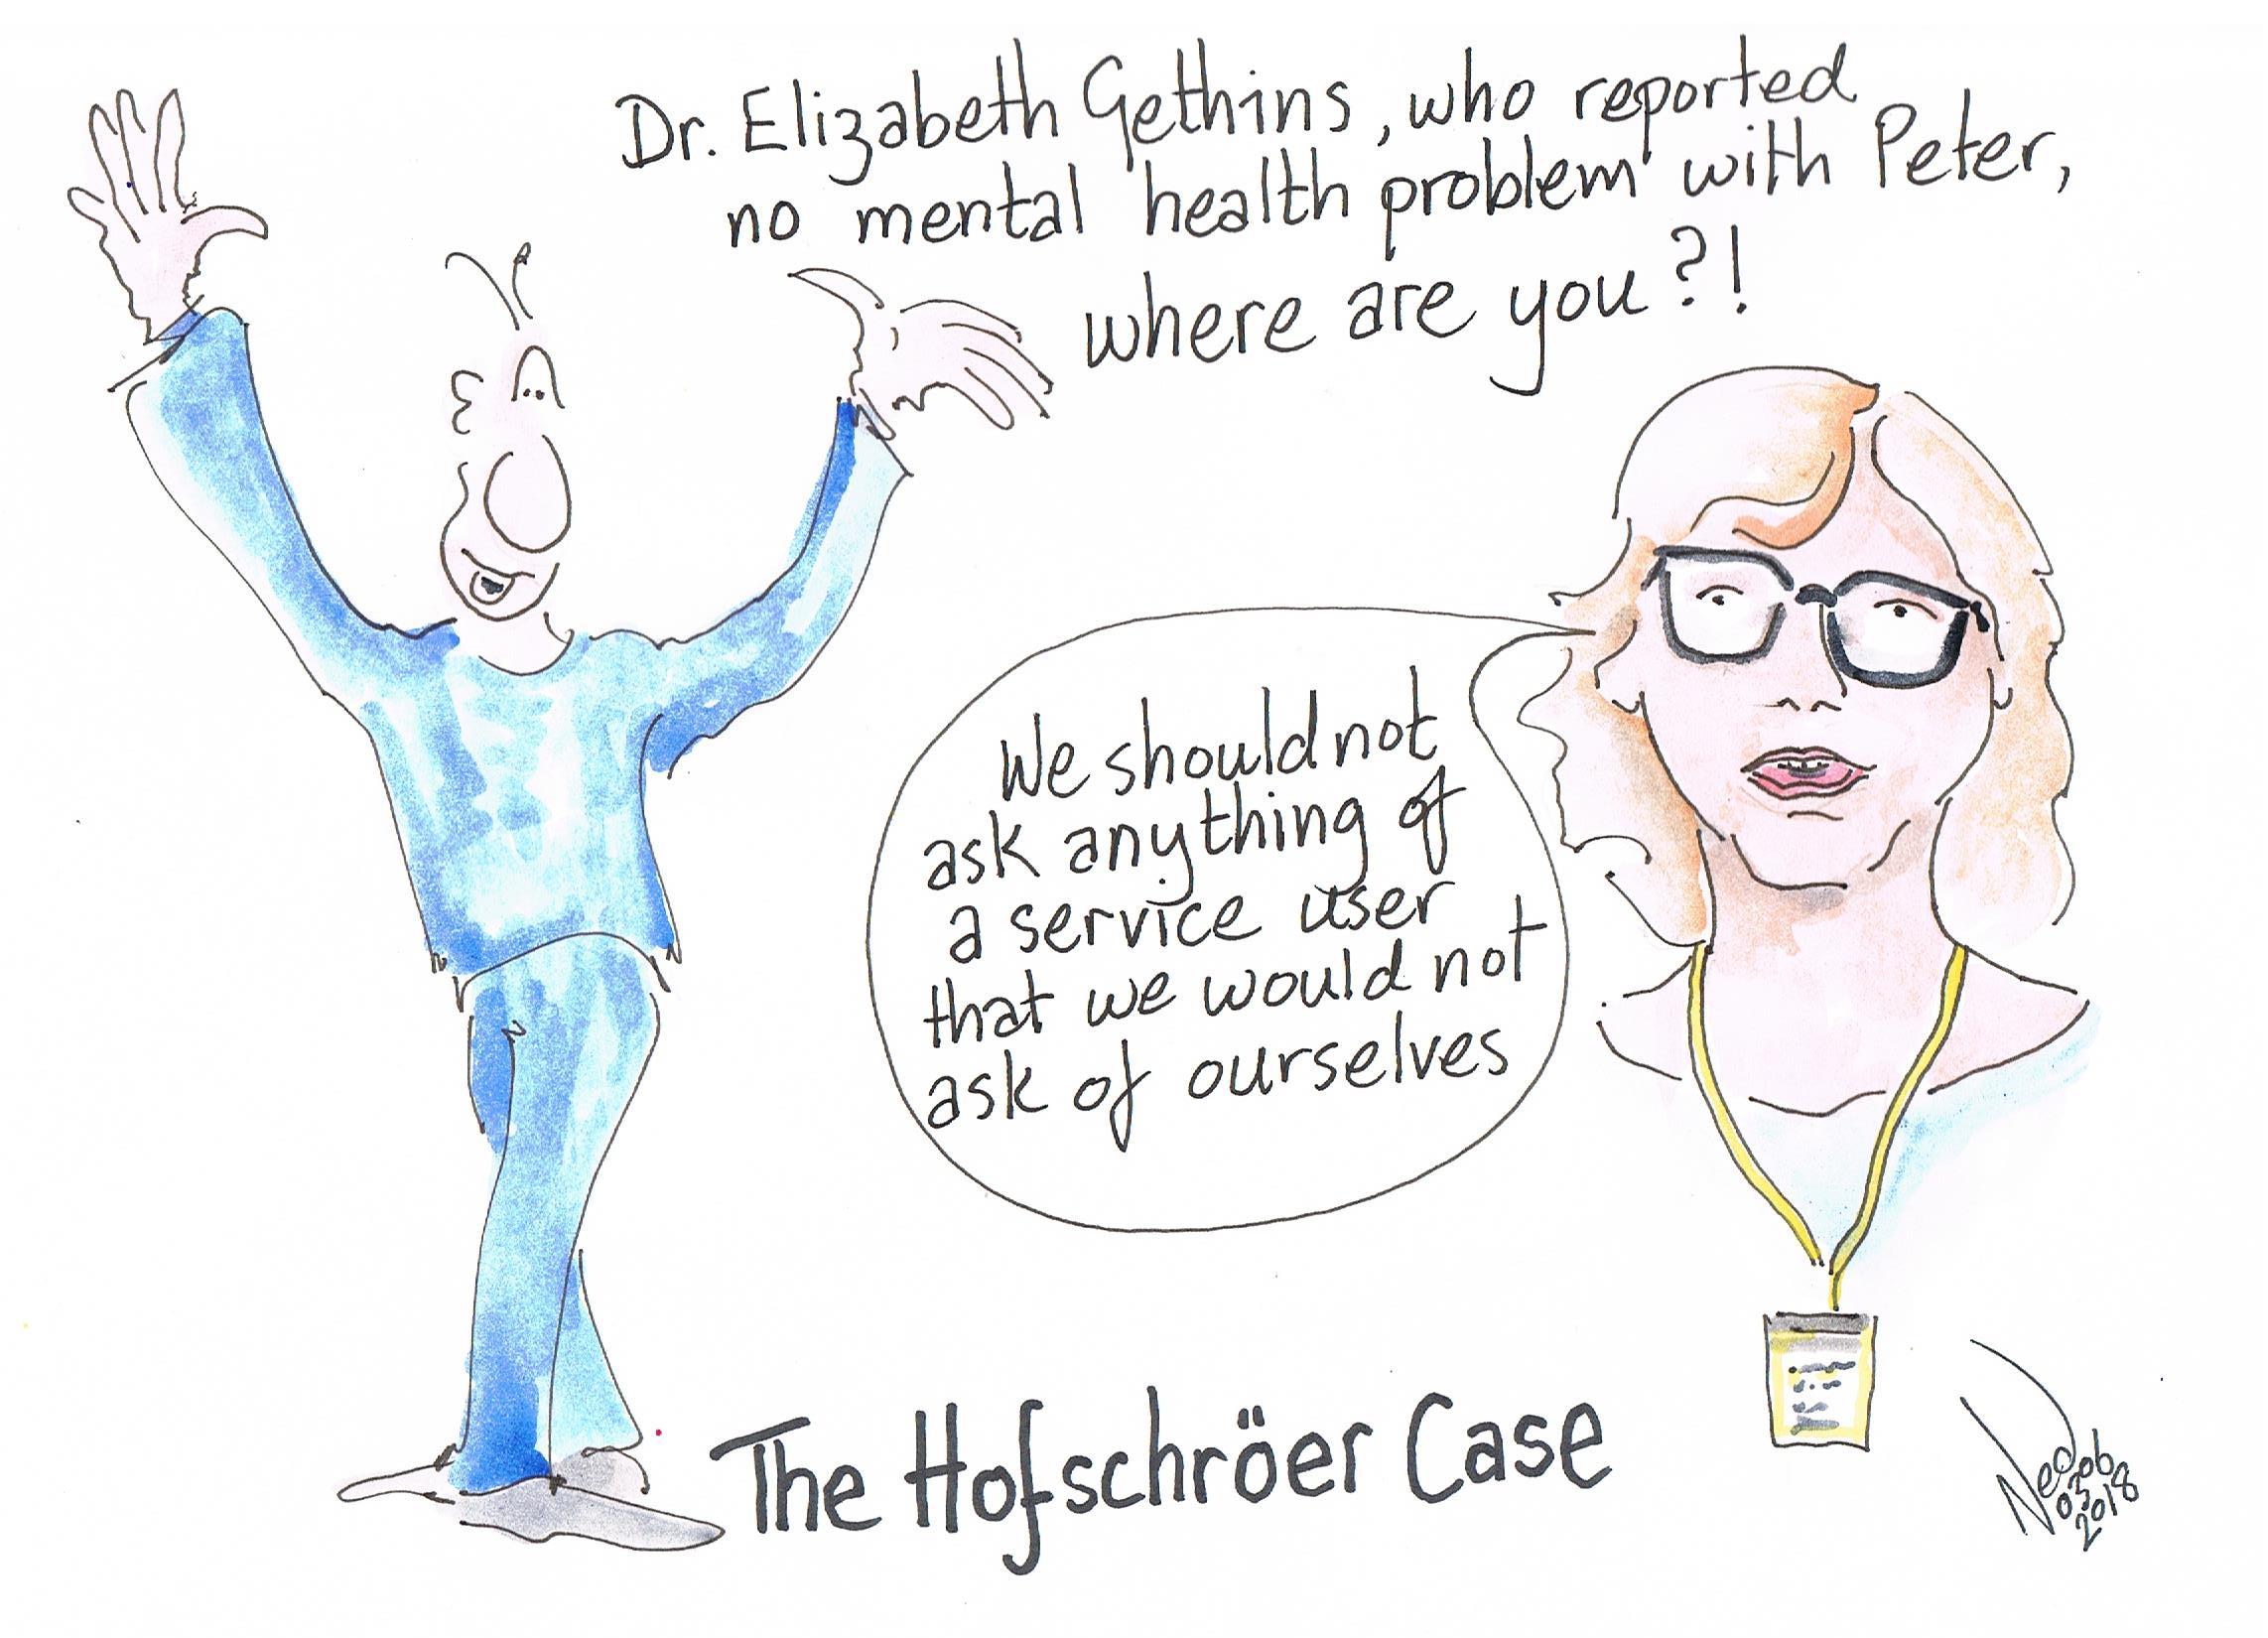 Dr. Elizabeth Gethins, who reported
no mental health problem with Peter,
where are you?!
We should not
ask anything of
a service user
that we would not
ask of ourselves
The Hofschröer Case
03
2018